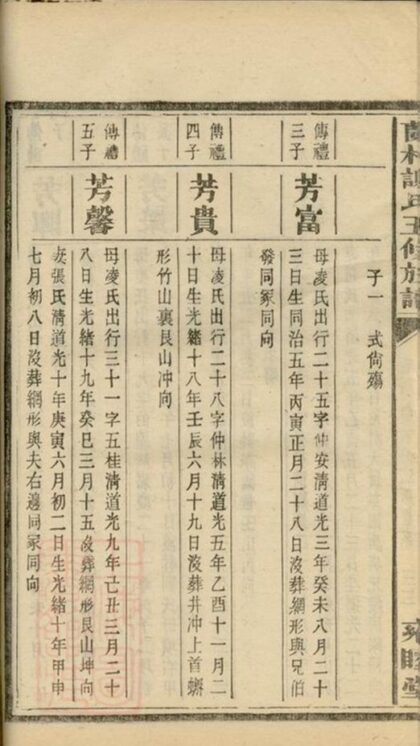 村氏五修族譜
睦堂
子一 式尙殤
傳禮
三子
芳富
母凌氏出行二十五字仲安淸道光三年癸未八月二十
三日生同治五年丙寅正月二十八日沒葬網形與兄伯
發同冢同向
傳禮
四子
芳貴
母凌氏出行二十八字仲林淸道光五年乙酉十一月二
十日生光緒十八年壬辰六月十九日沒葬井冲上首螄
形竹山裏艮山冲向
傳禮
五子
芳馨
母凌氏出行三十一字五桂淸道光九年己丑三月二十
八日生光緒十九年癸巳三月十五沒葬網形艮山坤向
妻張氏淸道光十年庚寅六月初二日生光緒十年甲申
七月初八日沒葬網形與夫右邊同冢同向